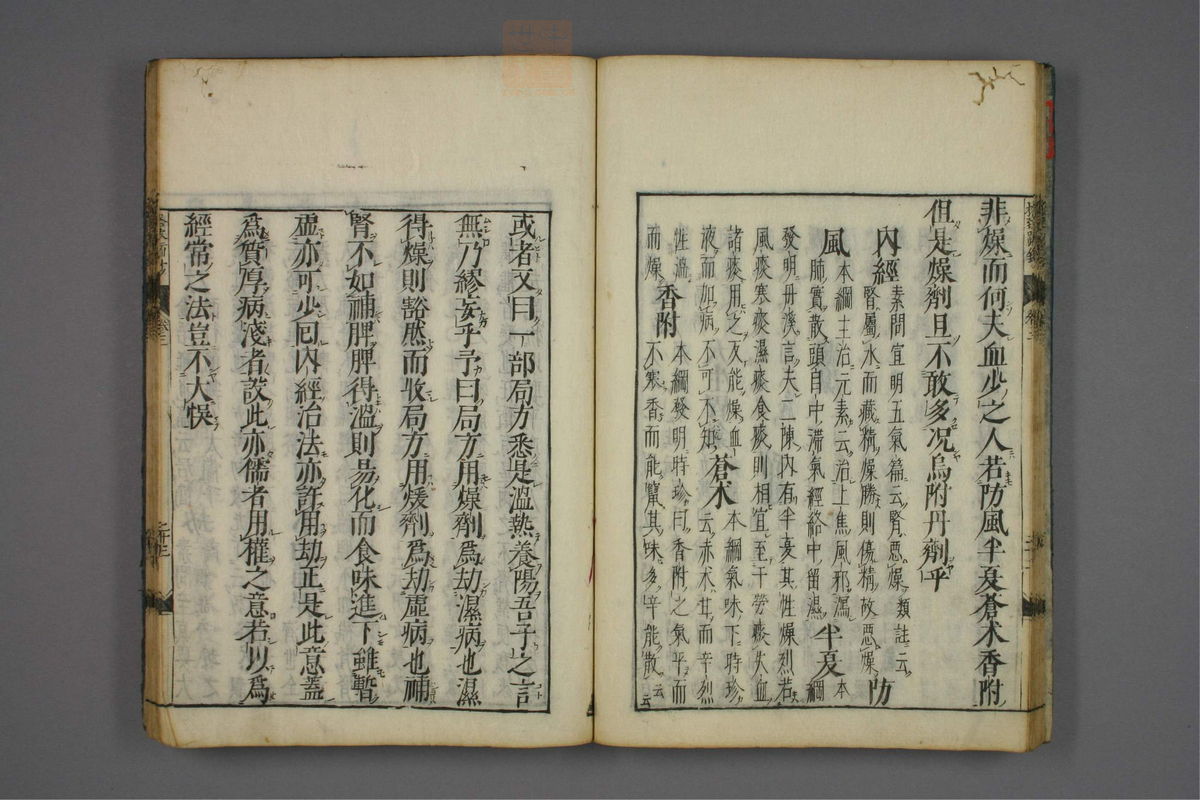 非燥而何夫血少之人若防風半夏蒼术香附
但是燥劑且不敢多况烏附丹劑乎
內經素問宣明五氣篇云腎惡燥類註云
腎屬水而藏精燥勝則傷精故惡燥防
風本綱主治元素云治上焦風邪瀉
肺實散頭目中滯氣經絡中留濕半夏本綱
發明丹溪言夫二陳內有半夏其性燥烈若
風痰寒痰濕痰食痰則相宜至于勞痰失血
諸痰用之反能燥血
液而加病不可不知蒼术本綱氣味下時珍
云赤术甘而辛烈
性溫而燥香附本綱發明時珍曰香附之氣平而
不寒香而能竄其味多辛能散云云
或者又曰一部局方悉是溫熱養陽吾子之言
無乃繆妄乎予曰局方用燥劑為劫濕病也濕
得燥則豁然而收局方用煖劑為劫虛病也補
腎不如補脾脾得溫則易化而食味進下雖暫
虛亦可少回內經治法亦許用劫正是此意蓋
為質厚病淺者設此亦儒者用權之意若以為
經常之法豈不大悞